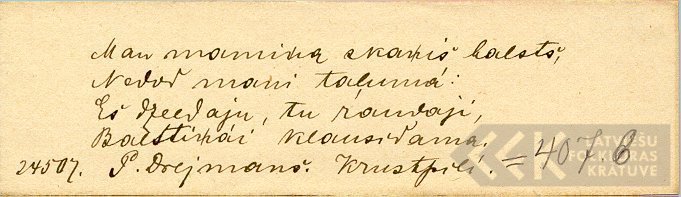 Man mamiņa skaņš balsts,
Nedod mani tāļumā:
Es dzeedaju, tu raudāji,
Balstiņāi klausidama.
24507. P. Drejmans. Krustpilī. = 407.6
LATVIEŠU
FOLKLORAS
KRĀTUVE